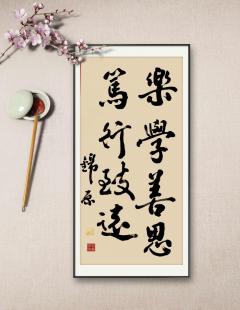 樂學善思
篤行致遠
錦原